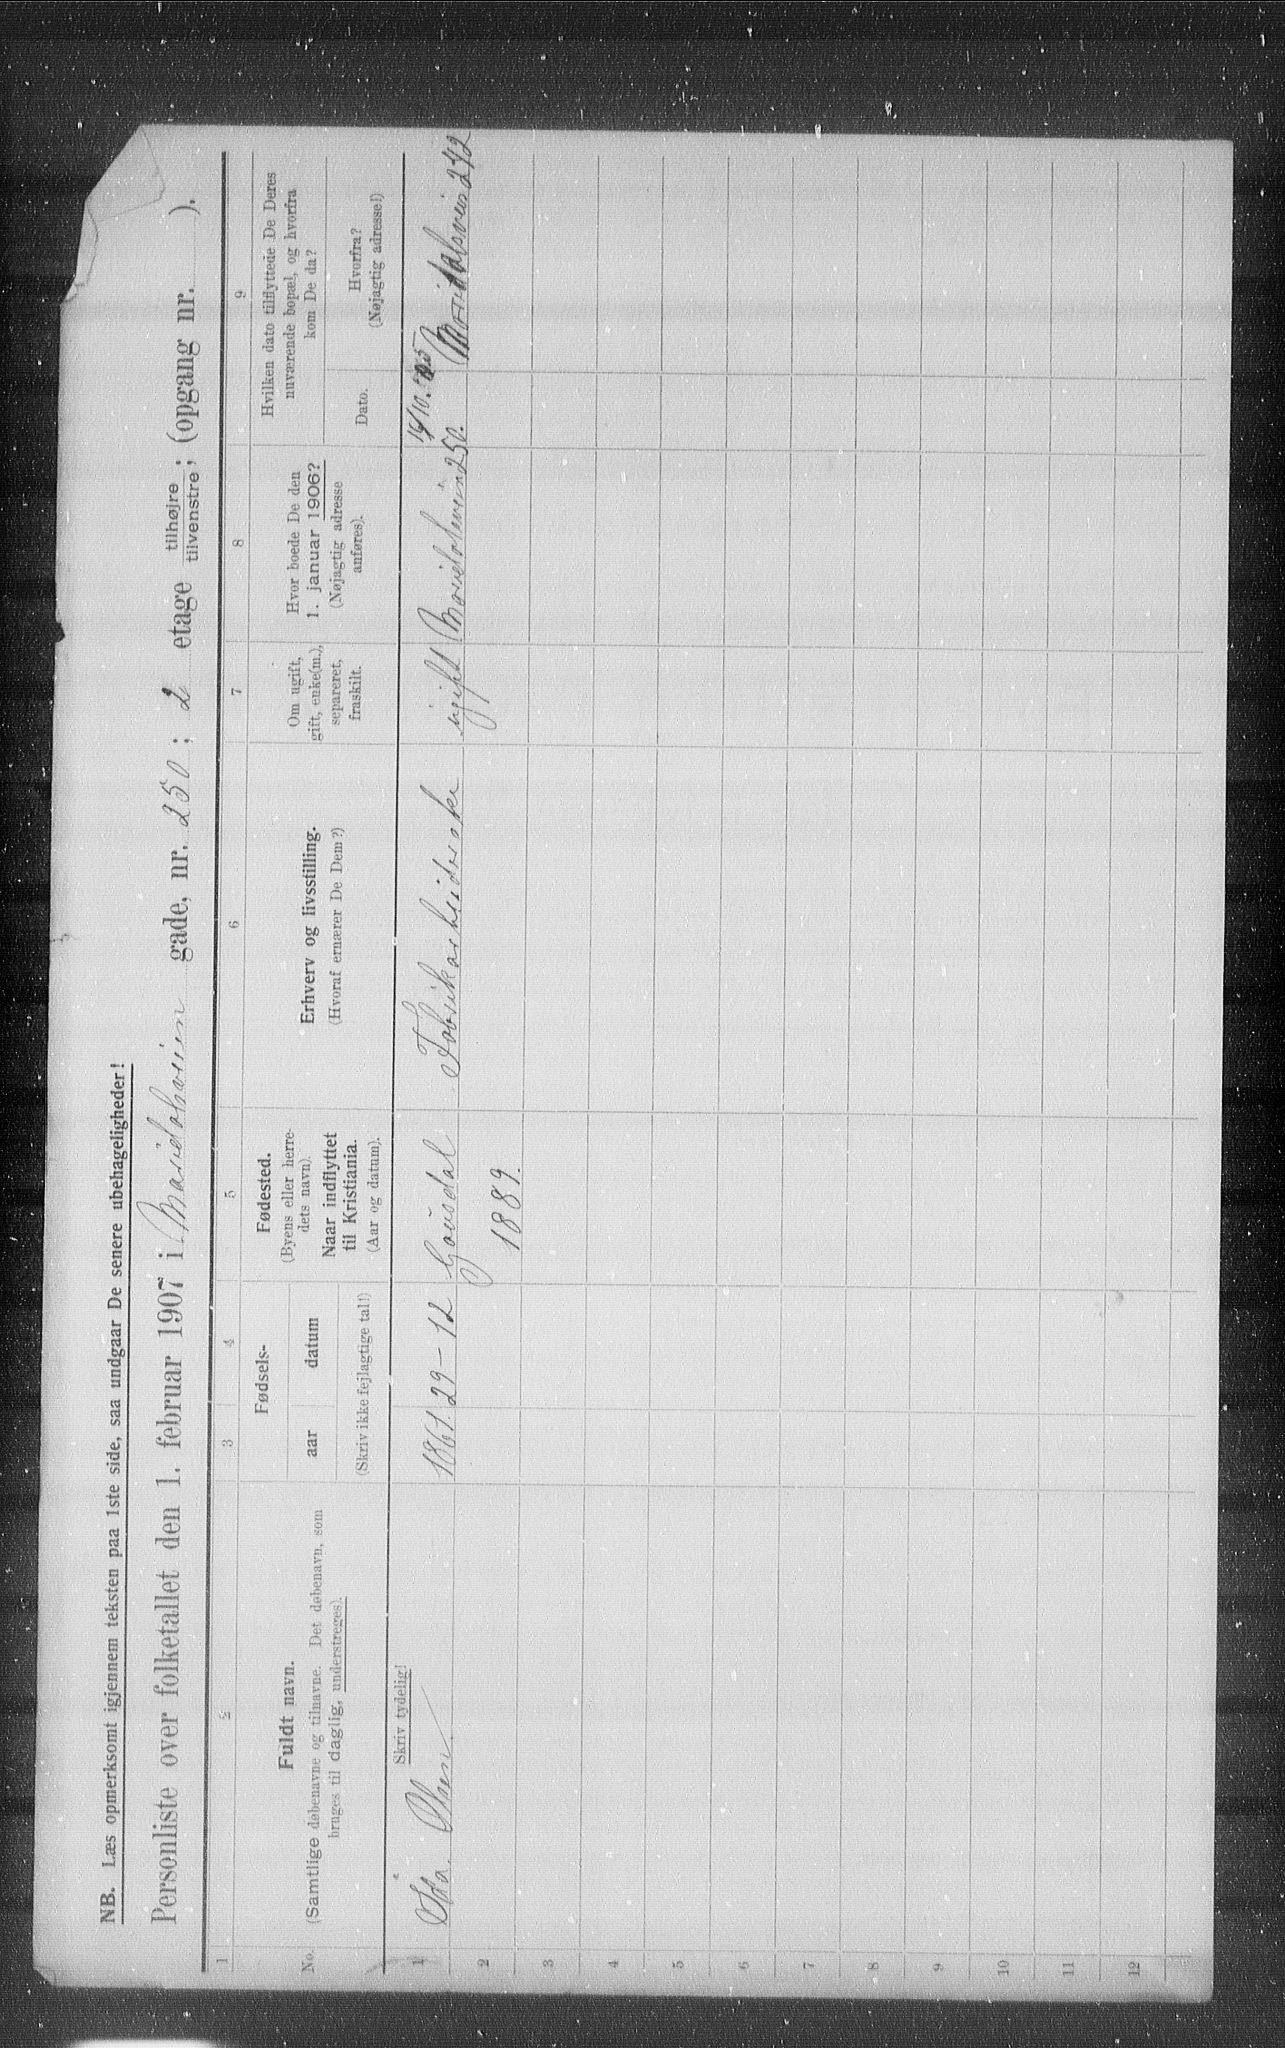 NB. Læs opmerksomt igjennem teksten paa 1ste side, saa undgaar De senere ubehageligheder!
Personliste over folketallet den 1. februar 1907 i Maridalsveien gade, nr. 250; 2 etage tilhøjre tilvenstre; (opgang nr. ).
1 2 3 4 5 6 7 8 9
No.
Fuldt navn.
(Samtlige døbenavne og tilnavne. Det døbenavn, som
bruges til daglig, understreges).
Fødsels-
aar datum
(Skriv ikke fejlagtige tal!)
Fødested.
(Byens eller herre-
dets navn).
Naar indflyttet
til Kristiania.
(Aar og datum).
Erhverv og livsstilling.
(Hvoraf ernærer De Dem?)
Om ugift,
gift, enke(m.),
separeret,
fraskilt.
Hvor boede De den
1. januar 1906?
(Nøjagtig adresse
anføres).
Hvilken dato tilflyttede De Deres
nuværende bopæl, og hvorfra
kom De da?
Dato.
Hvorfra?
(Nøjagtig adresse!)
Skriv tydelig!
1 Olsen 1861. 29-12 Gausdal Fabrikarbeiderske ugift Maridalsveien 250. Maridalsvein 242
2 1889.
3
4
5
6
7
8
9
10
11
12